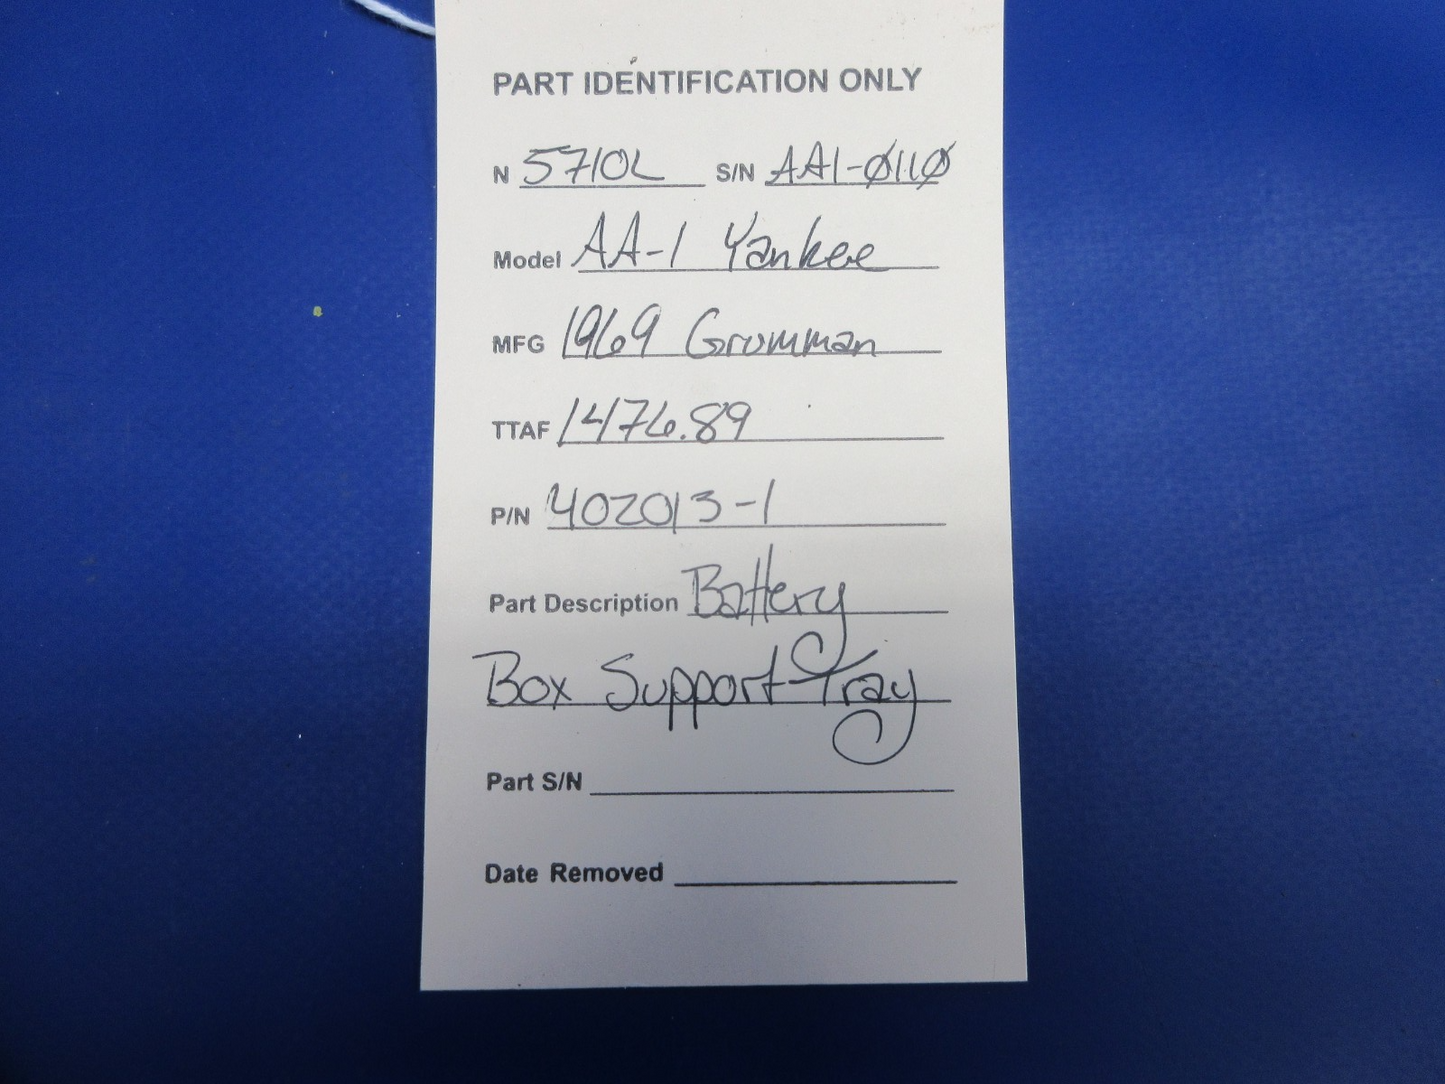 PART IDENTIFICATION ONLY
N 5710L S/N AA1-Ø11Ø
Model AA-1 Yankee
MFG 1969 Grumman
TTAF 1476.89
P/N 402013-1
Part Description Battery
Box Support Tray
Part S/N
Date Removed